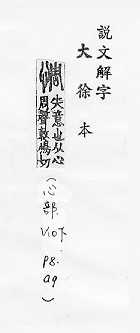 說文解字
大徐本
惆
失意也从心
周聲敕鳩切
(心部. V.10下. p8. a9)